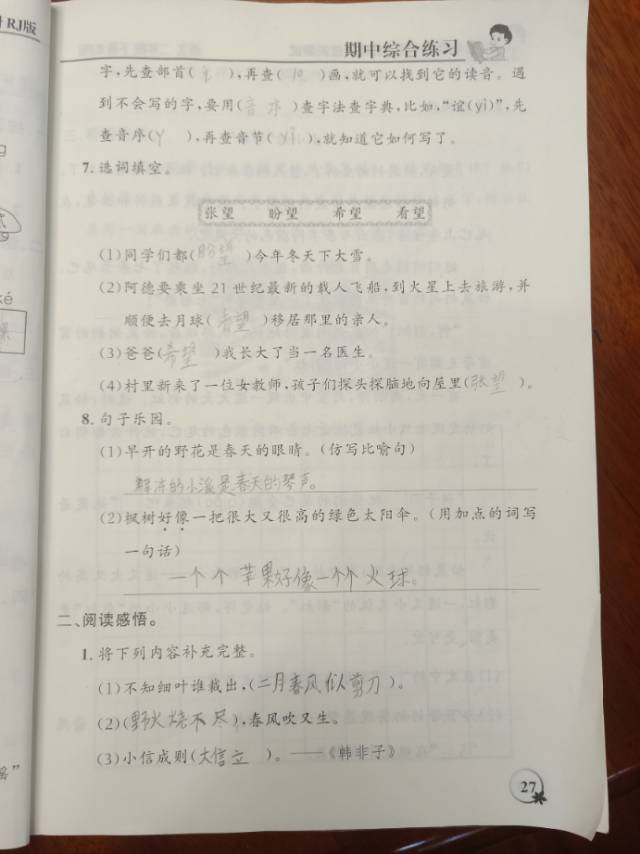 RJ版
期中综合练习
字,先查部首( ),再查(10)画,就可以找到它的读音。遇
到不会写的字,要用(音序)查字法查字典,比如,“谊(yì)”,先
查音序(Y),再查音节(yì),就知道它如何写了。
7.选词填空。
张望 盼望 希望 看望
(1)同学们都(盼望)今年冬天下大雪。
(2)阿德要乘坐21世纪最新的载人飞船,到火星上去旅游,并
顺便去月球(看望)移居那里的亲人。
(3)爸爸(希望)我长大了当一名医生。
(4)村里新来了一位女教师,孩子们探头探脑地向屋里(张望)。
8.句子乐园。
(1)早开的野花是春天的眼睛。(仿写比喻句)
解冻的小溪是春天的琴声。
(2)枫树好像一把很大又很高的绿色太阳伞。(用加点的词写
一句话)
一个个苹果好像一个个火球。
二、阅读感悟。
1.将下列内容补充完整。
(1)不知细叶谁裁出,(二月春风似剪刀)。
(2)(野火烧不尽),春风吹又生。
(3)小信成则(大信立)。——《韩非子》
27